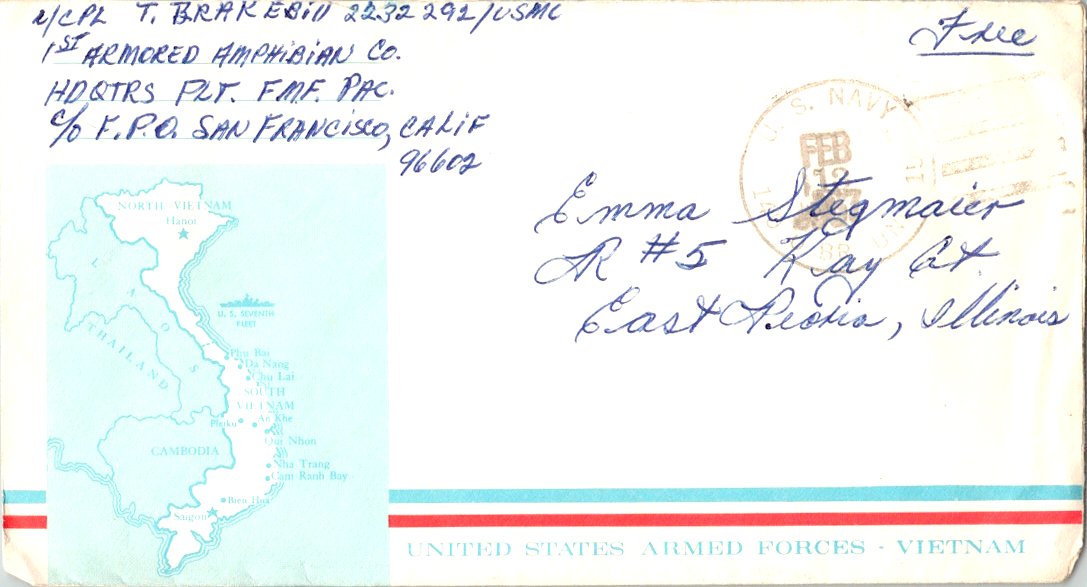 L/CPL T. BRAKEBill 2232292/USMC
1ST ARMORED AMPHiBiAN Co.
HDQTRS PLT. F.M.F. PAC.
c/o F.P.O. SAN FRANCiSCO, CALiF
96602
Free
U.S. NAVY
FEB
12
Emma Stegmaier
R #5 Kay Ct.
East Peoria, Illinois
NORTH VIETNAM
Hanoi
LAOS
THAILAND
U. S. SEVENTH
FLEET
Phu Bai
Da Nang
Chu Lai
SOUTH
VIETNAM
An Khe
Pleiku
Qui Nhon
CAMBODIA
Nha Trang
Cam Ranh Bay
Bien Hoa
Saigon
UNITED STATES ARMED FORCES - VIETNAM